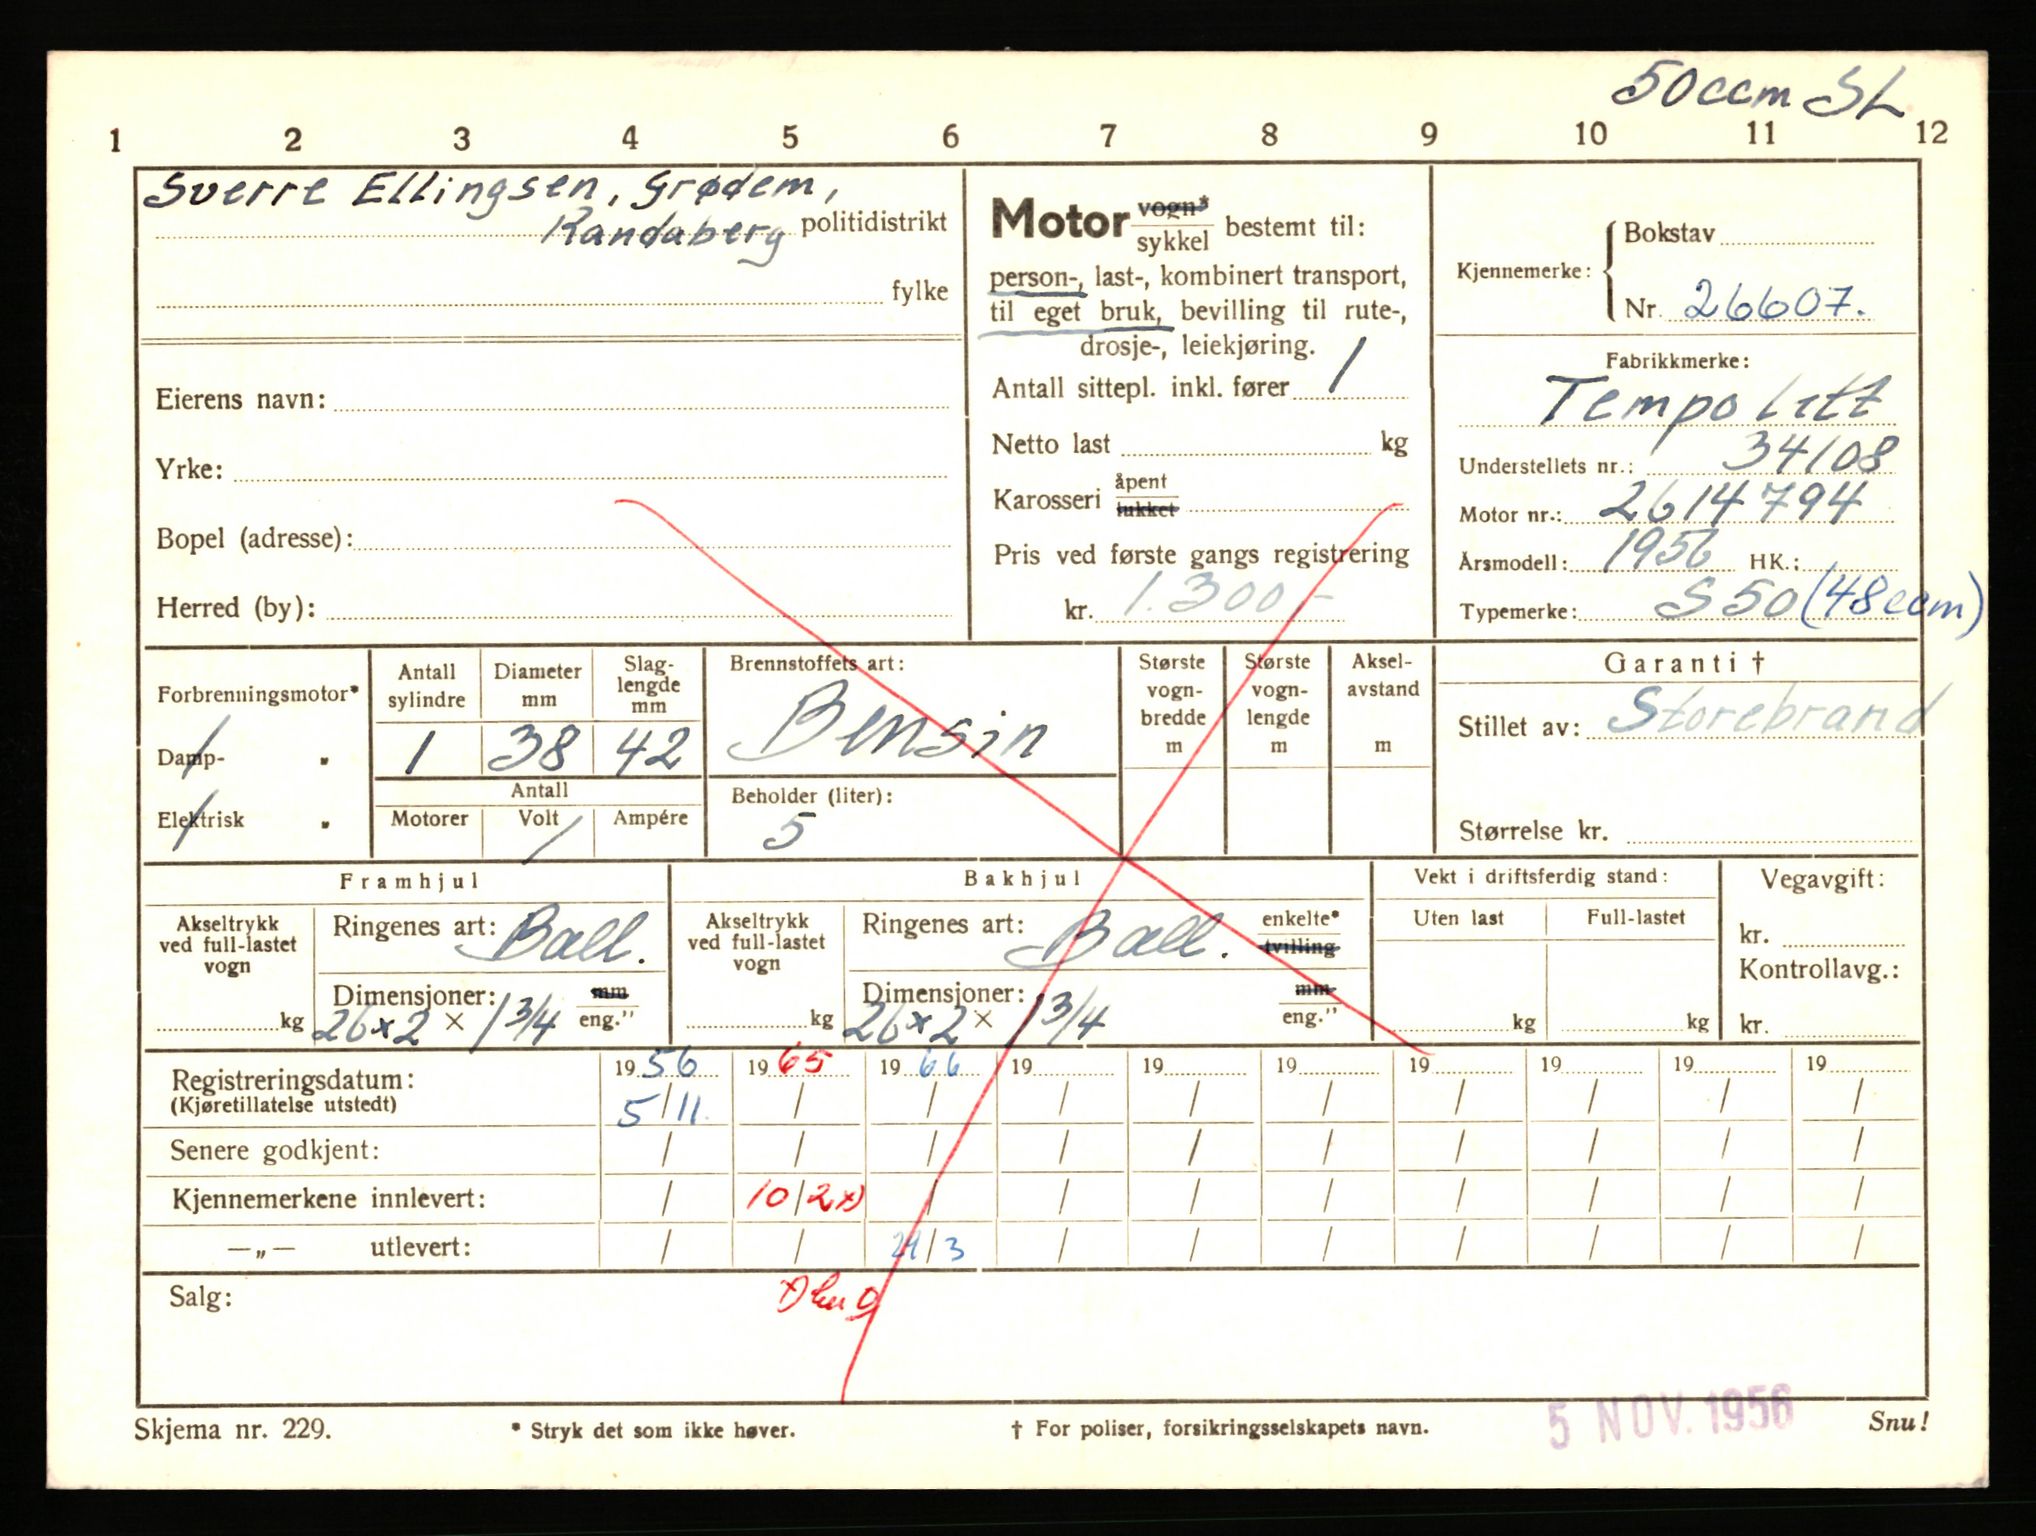 50ccm SL
1 2 3 4 5 6 7 8 9 10 11 12
Sverre Ellingsen, Grødem,
Randaberg politidistrikt
fylke
Eierens navn:
Yrke:
Bopel (adresse):
Herred (by):
Motor vogn* / sykkel bestemt til:
person-, last-, kombinert transport,
til eget bruk, bevilling til rute-,
drosje-, leiekjøring.
Antall sittepl. inkl. fører 1
Netto last kg
Karosseri åpent / lukket
Pris ved første gangs registrering
kr. 1.300,-
Kjennemerke: Bokstav
Nr. 26607.
Fabrikkmerke:
Tempo Lett
Understellets nr.: 34108
Motor nr.: 2614794
Årsmodell: 1956 HK.:
Typemerke: S 50 (48ccm)
Forbrenningsmotor*
Damp- "
Elektrisk "
Antall sylindre Diameter mm Slag-lengde mm
1 38 42
Antall
Motorer Volt Ampére
Brennstoffets art:
Bensin
Beholder (liter):
5
Største vogn-bredde m
Største vogn-lengde m
Aksel-avstand m
Garanti †
Stillet av: Storebrand
Størrelse kr.
Framhjul
Akseltrykk ved full-lastet vogn
kg
Ringenes art: Ball.
Dimensjoner: mm / eng."
26 x 2 × 1 3/4
Bakhjul
Akseltrykk ved full-lastet vogn
kg
Ringenes art: Ball. enkelte* / tvilling
Dimensjoner: mm / eng."
26 x 2 × 1 3/4
Vekt i driftsferdig stand:
Uten last Full-lastet
kg kg
Vegavgift:
kr.
Kontrollavg.:
kr.
19 56 19 65 19 66 19 19 19 19 19 19 19
Registreringsdatum:
(Kjøretillatelse utstedt) 5/11. / / / / / / / / /
Senere godkjent: / / / / / / / / / /
Kjennemerkene innlevert: / 10/2 x) / / / / / / / /
—„— utlevert: / / 24/3 / / / / / / /
Salg:
Skjema nr. 229.
* Stryk det som ikke høver.
† For poliser, forsikringsselskapets navn.
5 NOV. 1956
Snu!